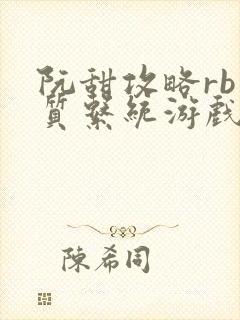 阮甜攻略rb
質繫統游戲
陳希同